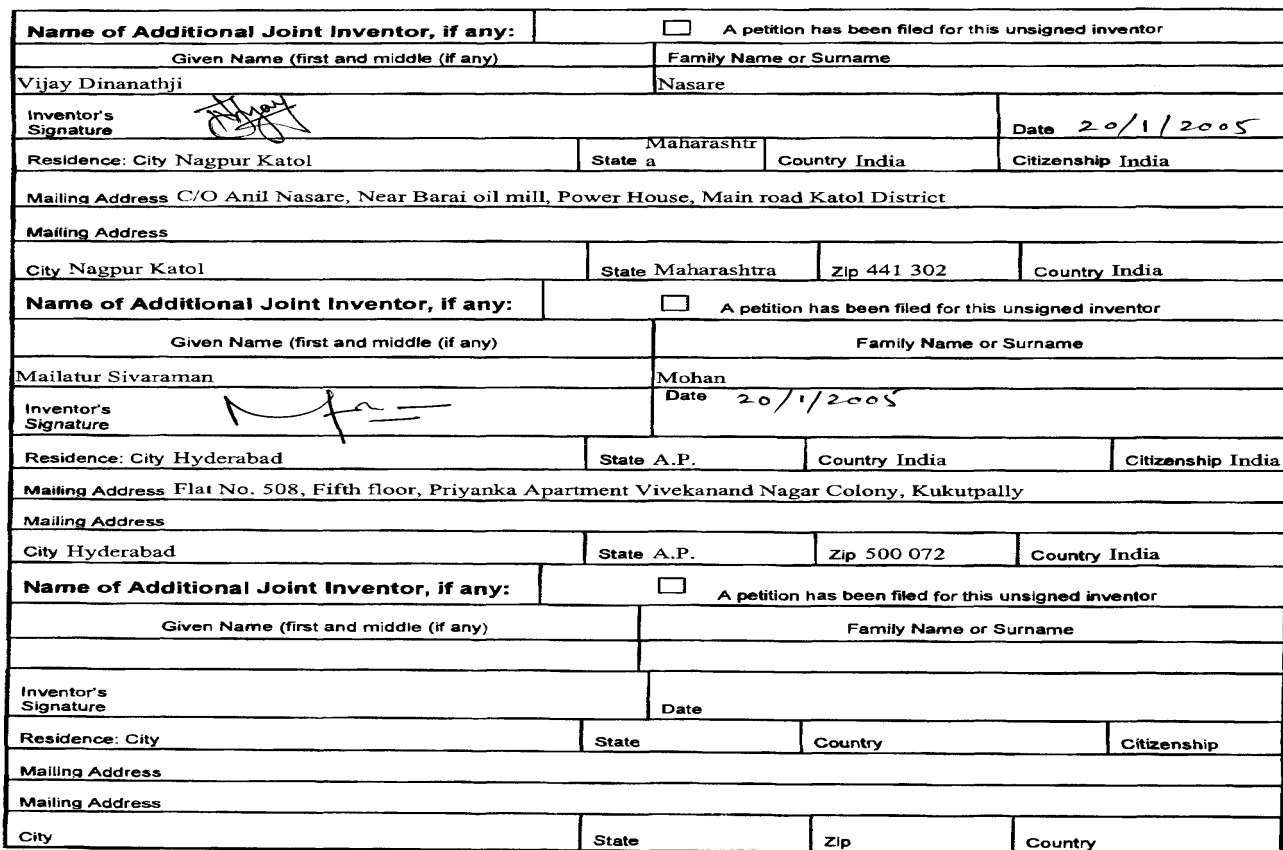 Name of Additional Joint Inventor, if any: ☐ A petition has been filed for this unsigned inventor
Given Name (first and middle (if any) Family Name or Surname
Vijay Dinanathji Nasare
Inventor's
Signature Date 20/1/2005
Maharashtr
Residence: City Nagpur Katol State a Country India Citizenship India
Mailing Address C/O Anil Nasare, Near Barai oil mill, Power House, Main road Katol District
Mailing Address
City Nagpur Katol State Maharashtra Zip 441 302 Country India
Name of Additional Joint Inventor, if any: ☐ A petition has been filed for this unsigned inventor
Given Name (first and middle (if any) Family Name or Surname
Mailatur Sivaraman Mohan
Inventor's Date 20/1/2005
Signature
Residence: City Hyderabad State A.P. Country India Citizenship India
Mailing Address Flat No. 508, Fifth floor, Priyanka Apartment Vivekanand Nagar Colony, Kukutpally
Mailing Address
City Hyderabad State A.P. Zip 500 072 Country India
Name of Additional Joint Inventor, if any: ☐ A petition has been filed for this unsigned inventor
Given Name (first and middle (if any) Family Name or Surname
Inventor's
Signature Date
Residence: City State Country Citizenship
Mailing Address
Mailing Address
City State Zip Country